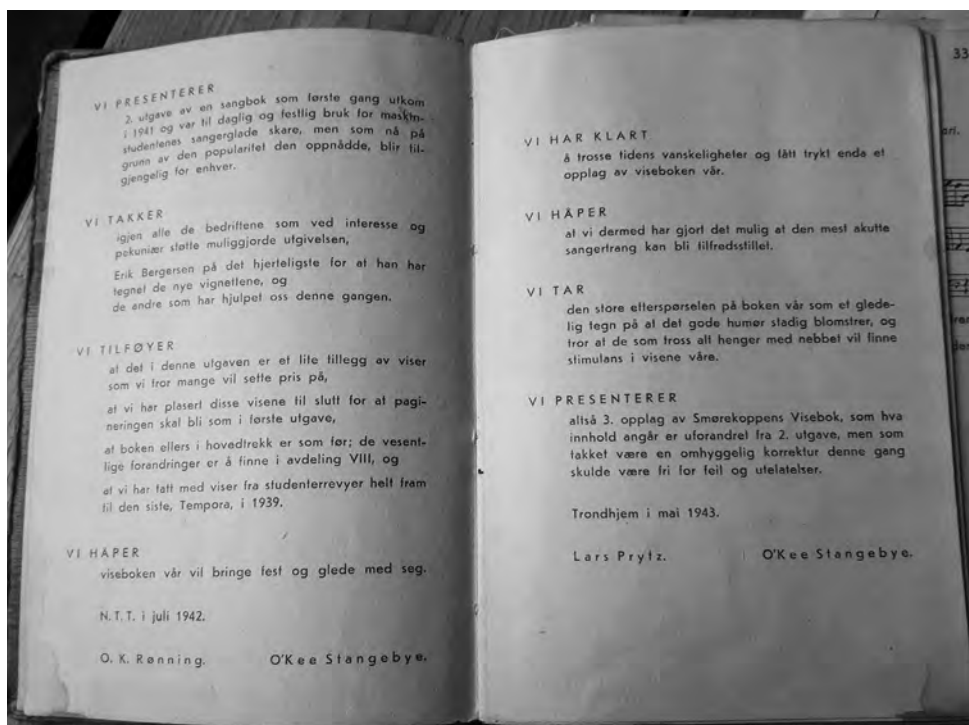 VI PRESENTERER
2. utgave av en sangbok som første gang utkom
i 1941 og var til daglig og festlig bruk for maskin-
studentenes sangerglade skare, men som nå på
grunn av den popularitet den oppnådde, blir til-
gjengelig for enhver.
VI TAKKER
igjen alle de bedriftene som ved interesse og
pekuniær støtte muliggjorde utgivelsen,
Erik Bergersen på det hjerteligste for at han har
tegnet de nye vignettene, og
de andre som har hjulpet oss denne gangen.
VI TILFØYER
at det i denne utgaven er et lite tillegg av viser
som vi tror mange vil sette pris på,
at vi har plasert disse visene til slutt for at pagi-
neringen skal bli som i første utgave,
at boken ellers i hovedtrekk er som før; de vesent-
lige forandringer er å finne i avdeling VIII, og
at vi har tatt med viser fra studenterrevyer helt fram
til den siste, Tempora, i 1939.
VI HÅPER
viseboken vår vil bringe fest og glede med seg.
N.T.T. i juli 1942.
O. K. Rønning. O'Kee Stangebye.
VI HAR KLART
å trosse tidens vanskeligheter og fått trykt enda et
opplag av viseboken vår.
VI HÅPER
at vi dermed har gjort det mulig at den mest akutte
sangertrang kan bli tilfredsstillet.
VI TAR
den store etterspørselen på boken vår som et glede-
lig tegn på at det gode humør stadig blomstrer, og
tror at de som tross alt henger med nebbet vil finne
stimulans i visene våre.
VI PRESENTERER
altså 3. opplag av Smørekoppens Visebok, som hva
innhold angår er uforandret fra 2. utgave, men som
takket være en omhyggelig korrektur denne gang
skulde være fri for feil og utelatelser.
Trondhjem i mai 1943.
Lars Prytz. O'Kee Stangebye.
33